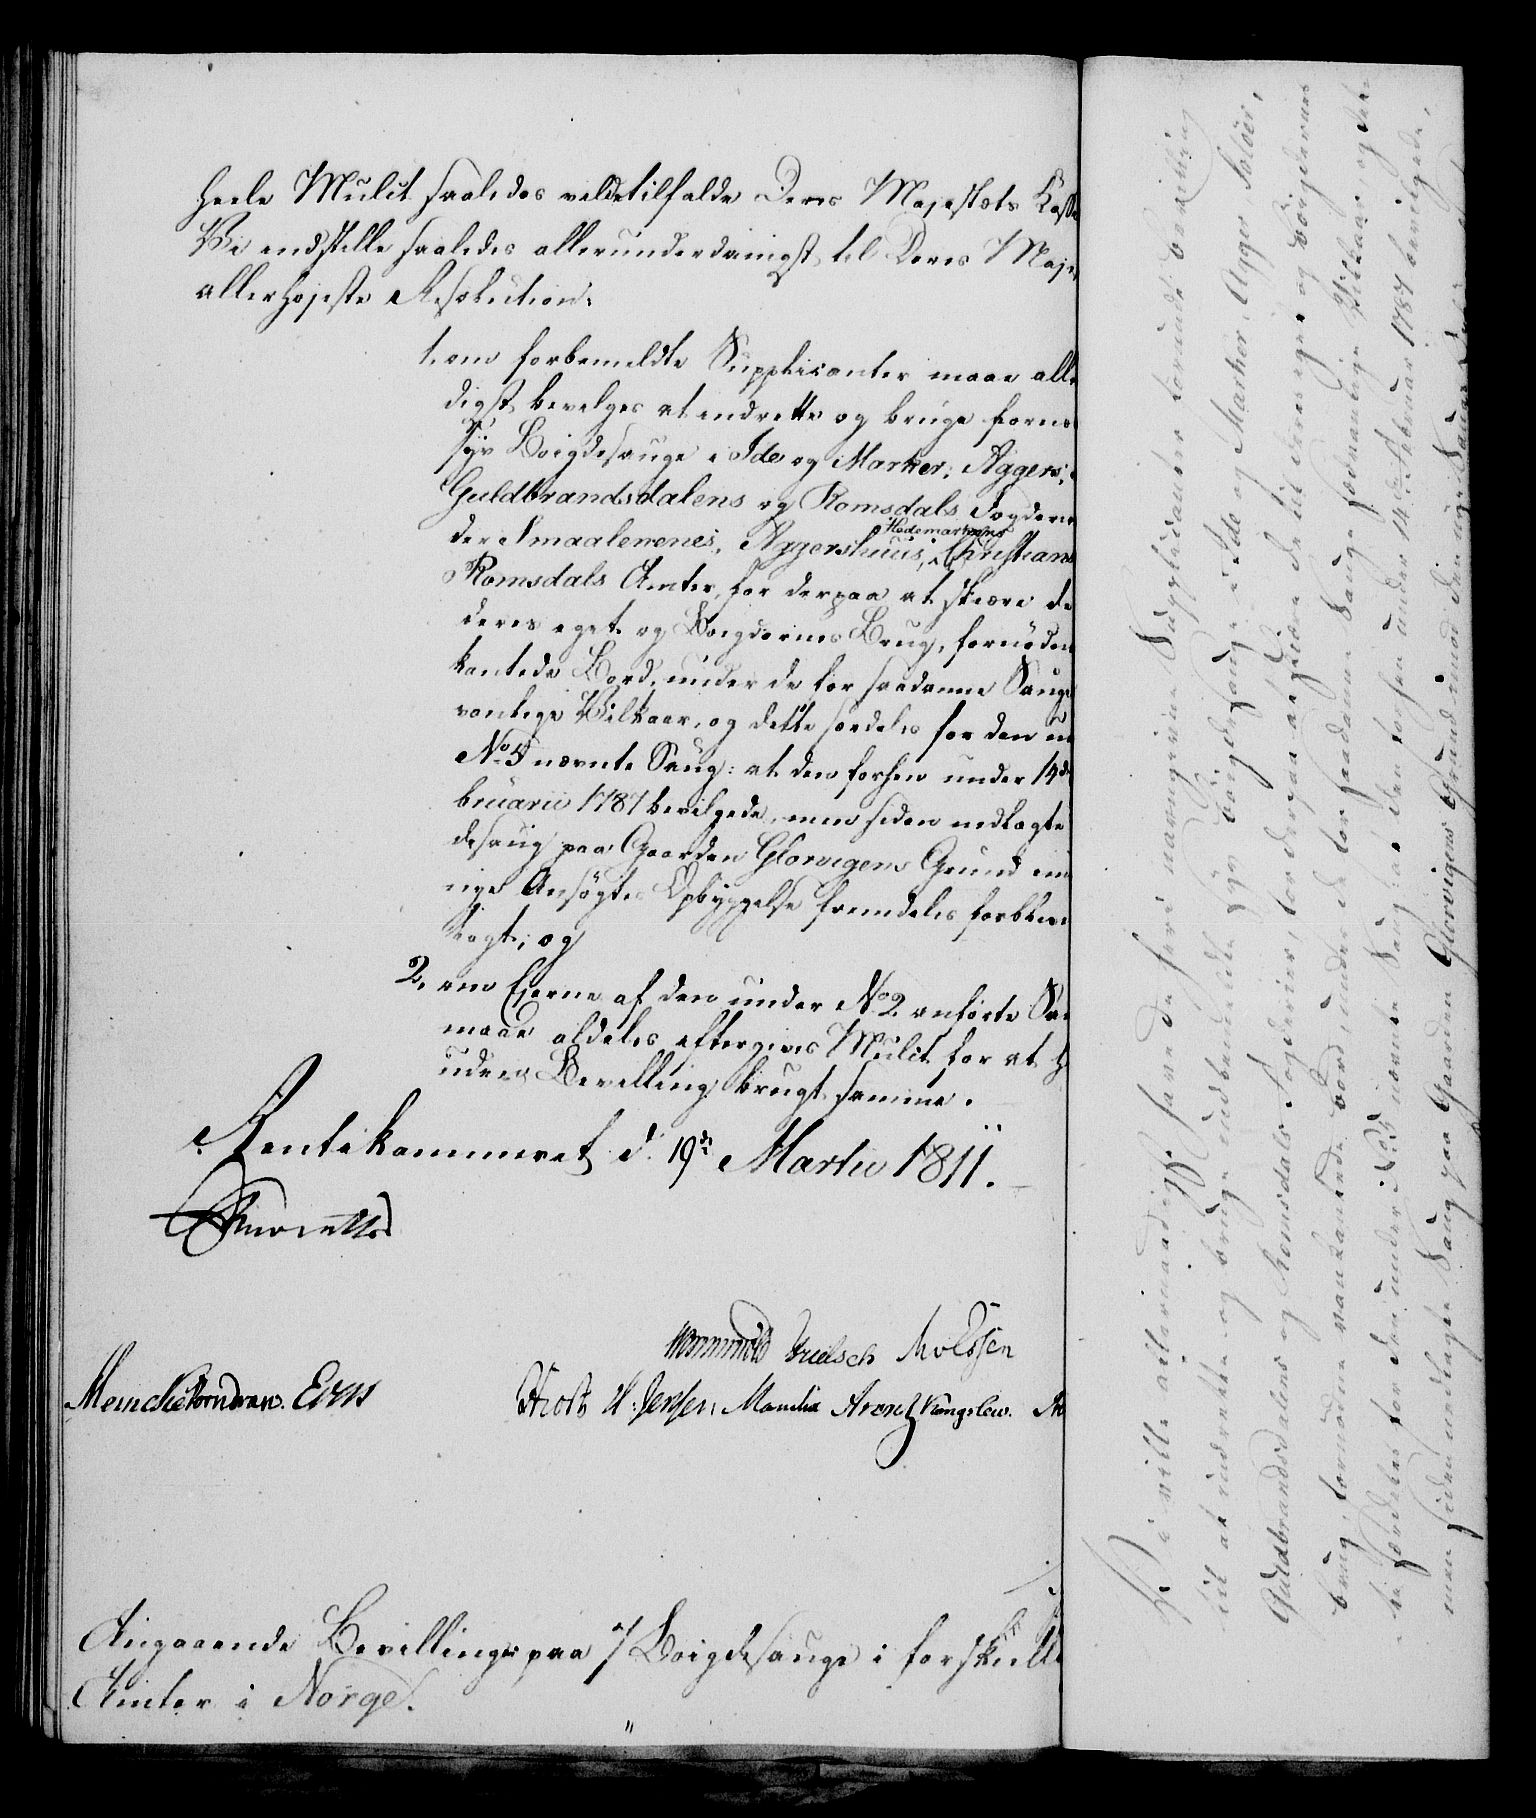 heele Mulct saaledes vilde tilfalde Deres Majestæts Kasse
Vi indstille saaledes allerunderdanigst til Deres Maje
allerhøjeste Resolution:
1. om forbemeldte Supplicanter maae alle
digst bevilges at indrette og bruge forne
syv Bøigdesauge i Ide og Marker, Aggers,
Guldbrandsdalens og Romsdals Fogderie
der Smaalenenes, Aggershuus, Hedemarkens Christians
Romsdals Amter, for derpaa at skiære de
deres eget og Bøigdernes Brug, fornøden
kantede Bord, under de for saadanne Sauge
vanlige Vilkaar, og dette særdeles for den u
No 5 nævnte Saug: at den forhen under 14de
bruarii 1787 bevilgede, men siden nedlagte
desaug paa Gaarden Glorvigens Grund im
nye Ansøgte Opbyggelse fremdeles forbliver
lagt; og
2. om Eierne af den under No 2 anførte Sa
maae aldeles eftergives Mulct for at h
uden Bevilling brugt samme.
Rentekammeret d. 19de Martii 1811.
Wormskiold Knelsch Moldsen
Meincke Bornemann. Eskw
Stroth H: Jensen, Manthe Arentz Kongslew.
Angaaende Bevillinger paa 7 Bøigdesauge i forskiell
Amter i Norge.
Vi ville allernaadigst have de heri navngivne Supplicanter forundt Bevilling
til at indrette og bruge indbemeldte syv Bøigdesauge i Ide og Marker, Agger Soløer,
Guldbrandsdalens og Romsdals Fogderier, for derpaa at skiære de til deres eget og Bøigdernes
Brug, fornødne vankantede Bord, under de for saadanne Sauge sædvanlige Vilkaar, og det
te særdeles for den under No 5 nævnte Saug: at den forhen under 14de Februar 1787 bevilgede,
men siden nedlagte Saug paa Gaarden Glorvigens Grund imod den nye Saugs